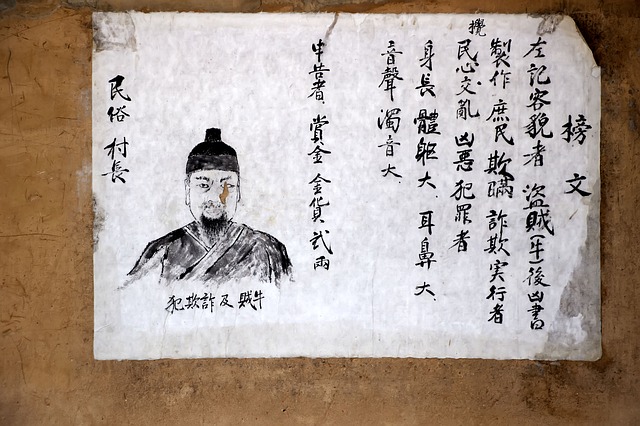 榜文
左記容貌者 盜賊(牛)後凶書
製作 庶民 欺瞞 詐欺 実行者
民心交亂 凶惡犯罪者
攪
身長 體軀大 耳鼻大.
音聲 濁音大.
申告者 賞金 金貨 貳兩
牛賊及詐欺犯
民俗村長